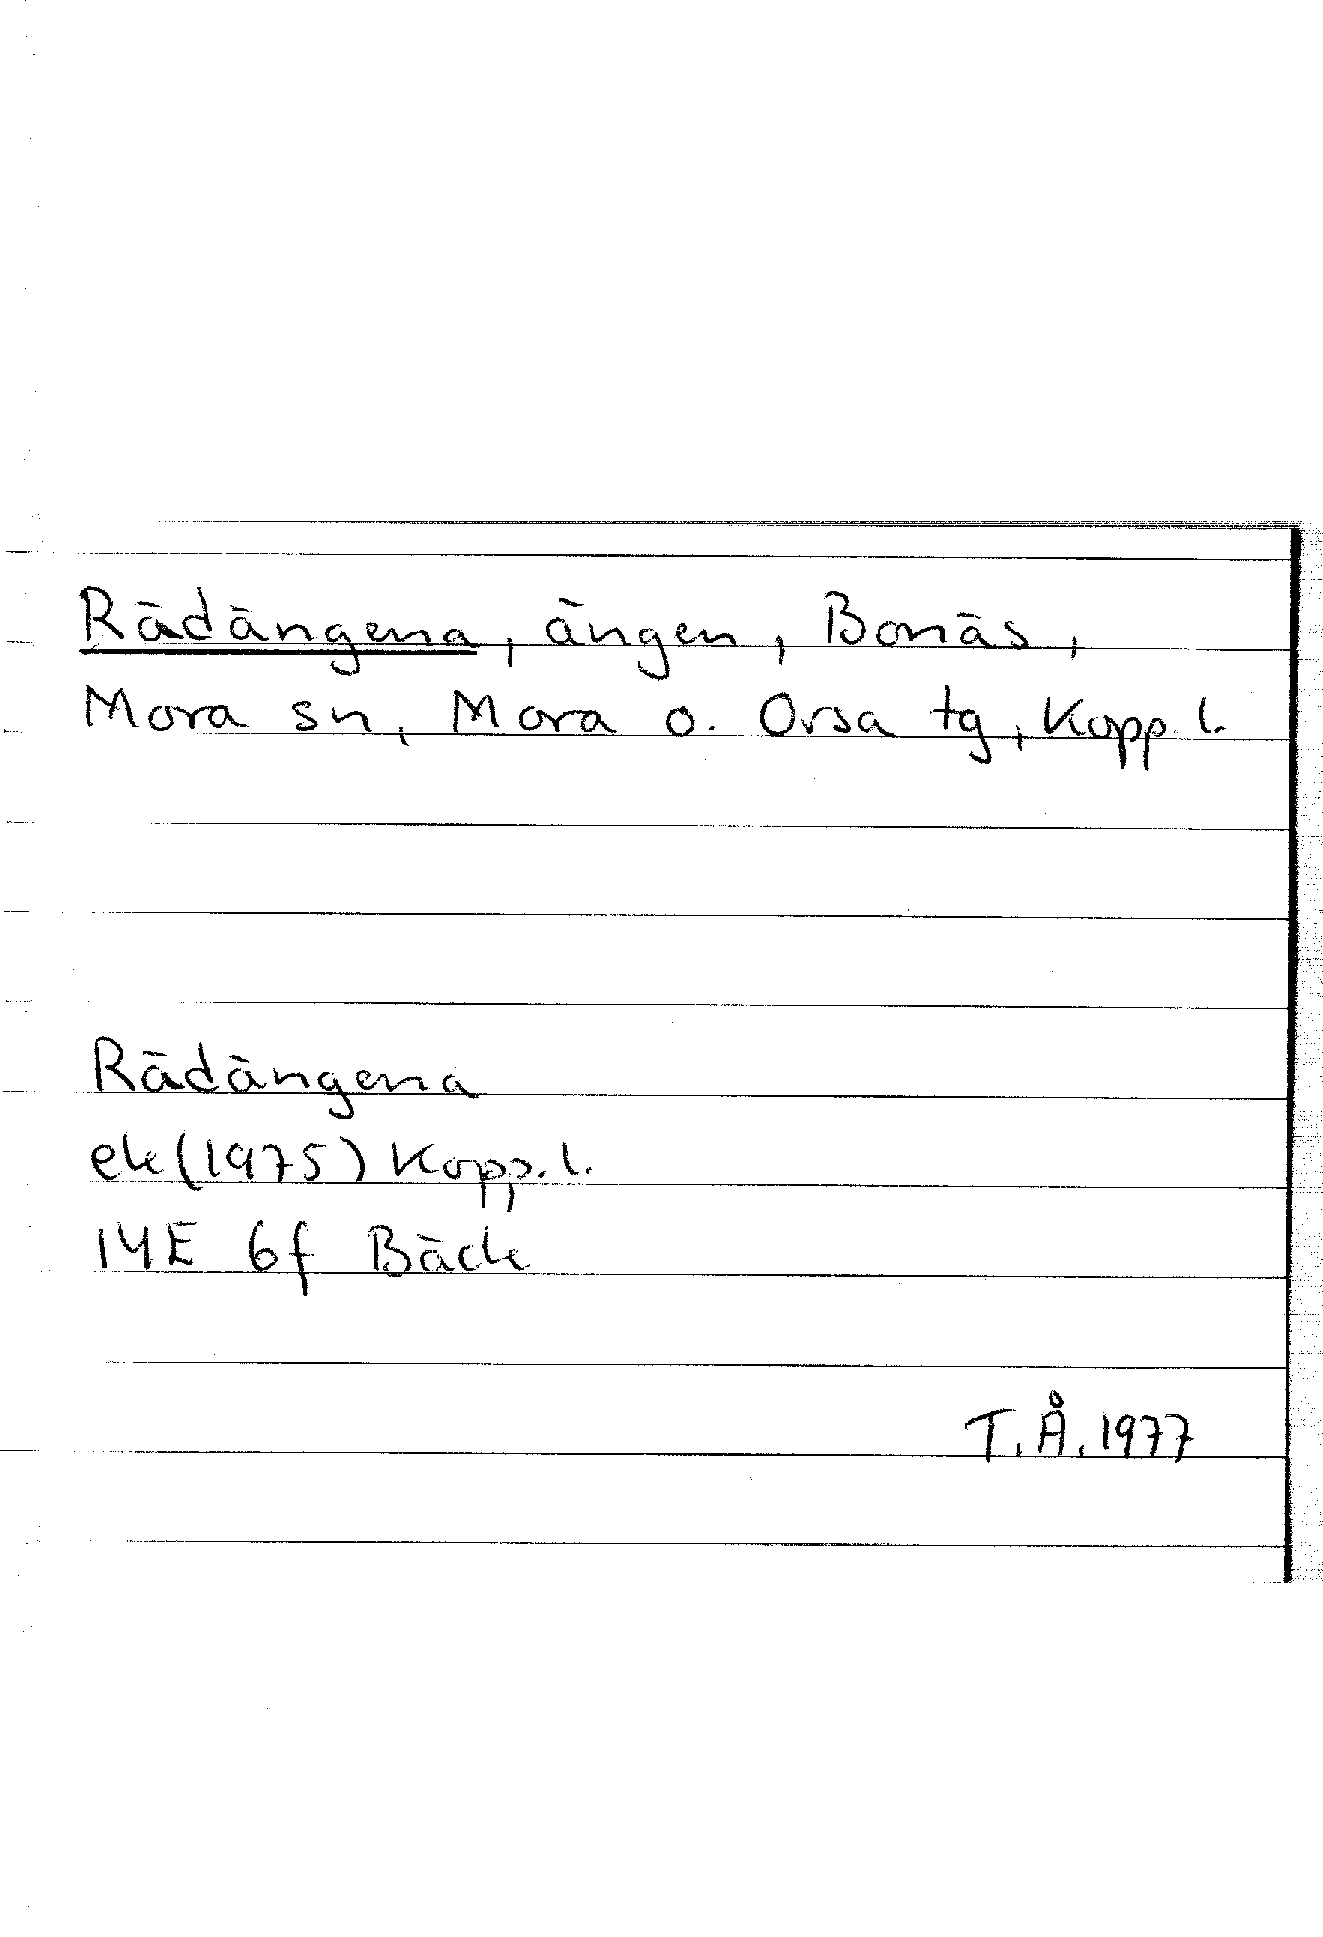 Rädängena, ängen, Bonäs,
Mora sn, Mora o. Orsa tg, Kopp. l.
Rädängena
ek (1975) Kopp. l.
14E 6f Bäck
T.Å. 1977